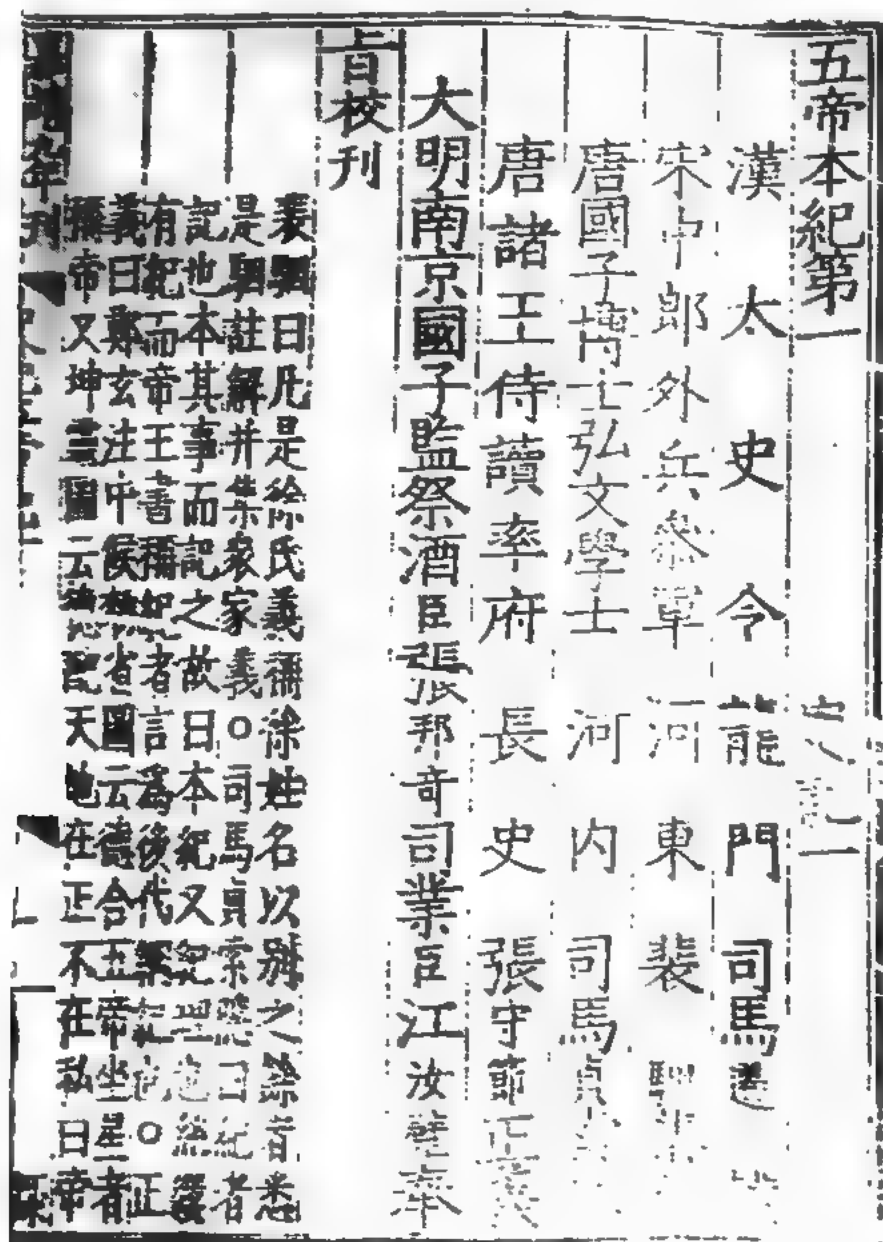 五帝本紀第一 史記一
漢太史令龍門司馬遷
宋中郎外兵參軍河東裴駰集
唐國子博士弘文學士河內司馬貞
唐諸王侍讀率府長史張守節正義
大明南京國子監祭酒臣張邦奇司業臣江汝璧奉
旨校刊
裴駰曰凡是徐氏義稱徐姓名以別之餘者悉
是駰註解并集衆家義○司馬貞索隱曰紀者
記也本其事而記之故曰本紀又紀理也絲縷
有紀而帝王書稱紀者言爲後代綱紀也○正
義曰鄭玄注中候敕省圖云德合五帝坐星者
稱帝又坤靈圖云德配天地在正不在私曰帝
年刊